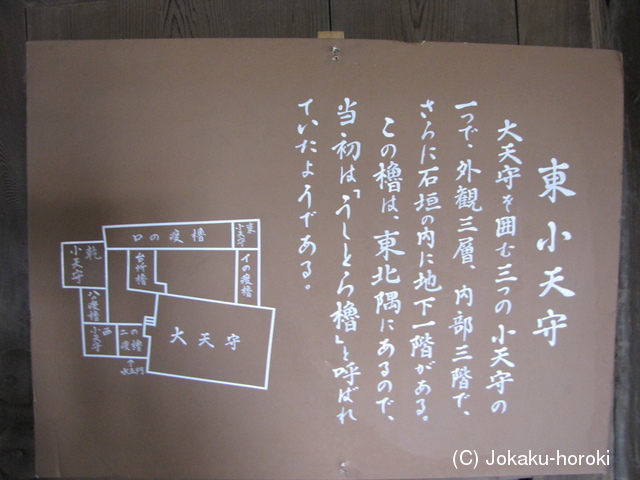 東小天守
大天守を囲む三つの小天守の
一つで、外観三層、内部三階で、
さらに石垣の内に地下一階がある。
この櫓は、東北隅にあるので、
当初は「うしとら櫓」と呼ばれ
ていたようである。
乾
小天守
ロの渡櫓
東
小天守
台所櫓
イの渡櫓
ハの渡櫓
西
小天守
ニの
渡櫓
大天守
水五門
(C) Jokaku-horoki